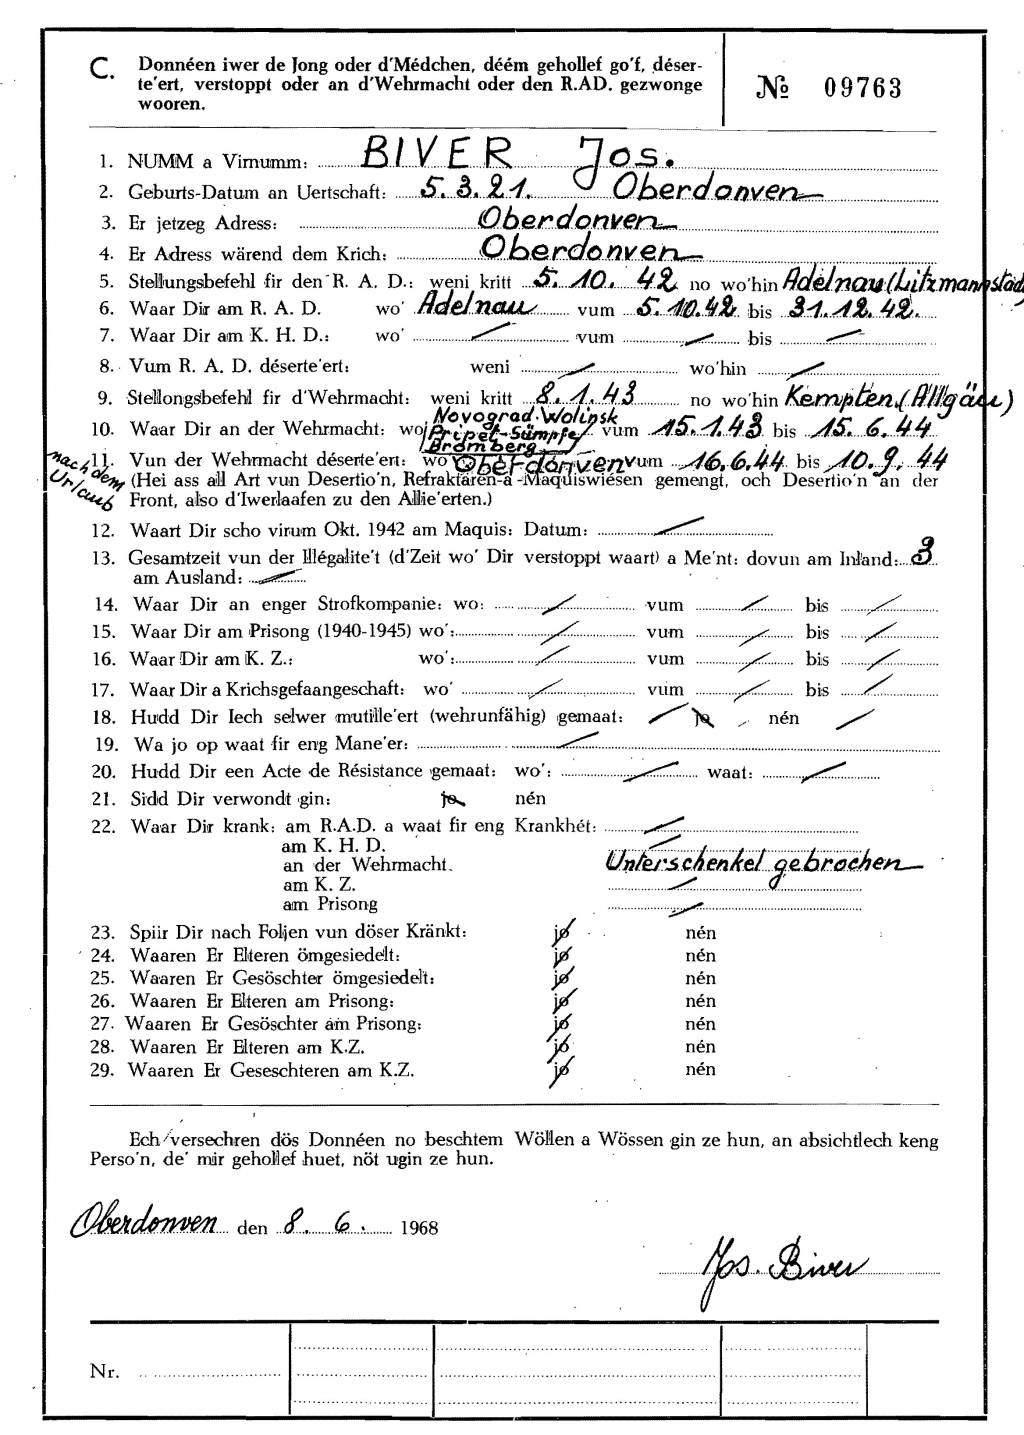 C. Donnéen iwer de Jong oder d'Médchen, déém gehollef go'f, déser-
te'ert, verstoppt oder an d'Wehrmacht oder den R.AD. gezwonge
wooren.
№ 09763
1. NUMM a Virnumm: BIVER Jos.
2. Geburts-Datum an Uertschaft: 5.3.21. Oberdonven
3. Er jetzeg Adress: Oberdonven
4. Er Adress wärend dem Krich: Oberdonven
5. Stellungsbefehl fir den R. A. D.: weni kritt 5. 10. 42 no wo'hin Adelnau (Litzmannstadt)
6. Waar Dir am R. A. D. wo' Adelnau vum 5.10.42 bis 31.12.42.
7. Waar Dir am K. H. D.: wo' vum bis
8. Vum R. A. D. déserte'ert: weni wo'hin
9. Stellongsbefehl fir d'Wehrmacht: weni kritt 8.1.43 no wo'hin Kempten (Allgäu)
Novograd-Wolinsk
10. Waar Dir an der Wehrmacht: wo Pripet-Sümpfe vum 15.1.43 bis 15.6.44
Bromberg
nach dem Urlaub
11. Vun der Wehrmacht déserte'ert: wo Oberdonven vum 16.6.44 bis 10.9.44
(Hei ass all Art vun Desertio'n, Refraktären-a -Maquiswiesen gemengt, och Desertio'n an der
Front, also d'Iwerlaafen zu den Allie'erten.)
12. Waart Dir scho virum Okt. 1942 am Maquis: Datum:
13. Gesamtzeit vun der Illégalite't (d'Zeit wo' Dir verstoppt waart) a Me'nt: dovun am Inland: 3
am Ausland:
14. Waar Dir an enger Strofkompanie: wo: vum bis
15. Waar Dir am Prisong (1940-1945) wo': vum bis
16. Waar Dir am K. Z.: wo': vum bis
17. Waar Dir a Krichsgefaangeschaft: wo' vum bis
18. Hudd Dir Iech selwer mutille'ert (wehrunfähig) gemaat: jo nén
19. Wa jo op waat fir eng Mane'er:
20. Hudd Dir een Acte de Résistance gemaat: wo': waat:
21. Sidd Dir verwondt gin: jo nén
22. Waar Dir krank: am R.A.D. a waat fir eng Krankhét:
am K. H. D.
an der Wehrmacht. Unterschenkel gebrochen
am K. Z.
am Prisong
23. Spiir Dir nach Foljen vun döser Kränkt: jo nén
24. Waaren Er Elteren ömgesiedelt: jo nén
25. Waaren Er Gesöschter ömgesiedelt: jo nén
26. Waaren Er Elteren am Prisong: jo nén
27. Waaren Er Gesöschter am Prisong: jo nén
28. Waaren Er Elteren am K.Z. jo nén
29. Waaren Er Geseschteren am K.Z. jo nén
Ech versechren dös Donnéen no beschtem Wöllen a Wössen gin ze hun, an absichtlech keng
Perso'n, de' mir gehollef huet, nöt ugin ze hun.
Oberdonven den 8. 6. 1968
Jos. Biver
Nr.